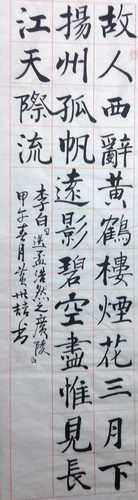 故人西辭黃鶴樓煙花三月下
揚州孤帆遠影碧空盡惟見長
江天際流
李白送孟浩然之廣陵
甲午春月黃